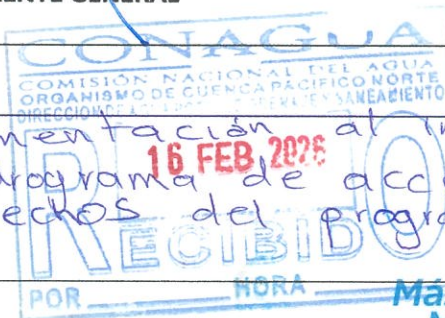 ENTE GENERAL
CONAGUA
COMISIÓN NACIONAL DEL AGUA
ORGANISMO DE CUENCA PACÍFICO NORTE
DIRECCIÓN DE AGUA SANEAMIENTO
mentación al in
16 FEB 2026
programa de acc
echos del progra
RECIBIDO
POR HORA
Más